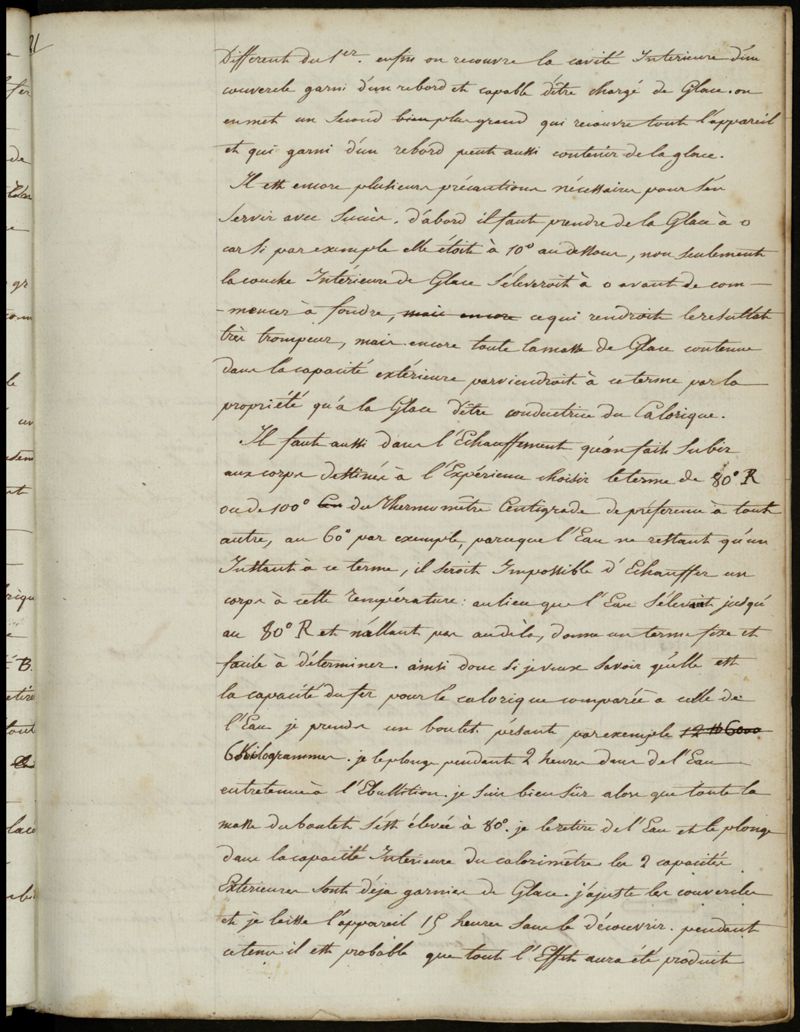 Different du 1er. enfin on recouvre la cavité Interieure d'un
couvercle garni d'un rebord et capable d'être chargé de Glace. on
en met un second bien plus grand qui recouvre tout l'appareil
et qui garni d'un rebord peut aussi contenir de la glace.
Il est encore plusieurs précautions nécessaires pour s'en
servir avec succès. d'abord il faut prendre de la Glace à 0
car si par exemple elle étoit à 10° au dessous, non seulement
la couche Intérieure de Glace s'éleveroit à 0 avant de com-
-mencer à fondre, mais encore ce qui rendroit le résultat
très trompeur, mais encore toute la masse de Glace contenue
dans la capacité extérieure parviendroit à ce terme par la
propriété qu'a la Glace d'être conductrice du Calorique.
Il faut aussi dans l'Echauffement qu'on fait subir
aux corps destinés à l'Expérience choisir le terme de 80° R
ou de 100° Cen du Thermomètre Centigrade de préférence à tout
autre, au 60° par exemple, parceque l'Eau ne restant qu'un
Instant à ce terme, il seroit Impossible d'Echauffer un
corps à cette température: au lieu que l'Eau s'élevant jusqu'
au 80° R et n'allant pas au delà, donne un terme fixe et
facile à déterminer. ainsi donc si je veux savoir quelle est
la capacité du fer pour le calorique comparée à celle de
l'Eau je prends un boulet pésant par exemple 12 ℔ 6000
6 Kilogrammes. je le plonge pendant 2 heures dans de l'Eau
entretenue à l'Ebullition. je suis bien sûr alors que toute la
masse du boulet s'est élevée à 80°. je le retire de l'Eau et le plonge
dans la capacité Intérieure du calorimètre les 2 capacités
Extérieures sont déja garnies de Glace. j'ajuste les couvercles
et je laisse l'appareil 15 heures sans le découvrir. pendant
ce tems il est probable que tout l'Effet aura été produit